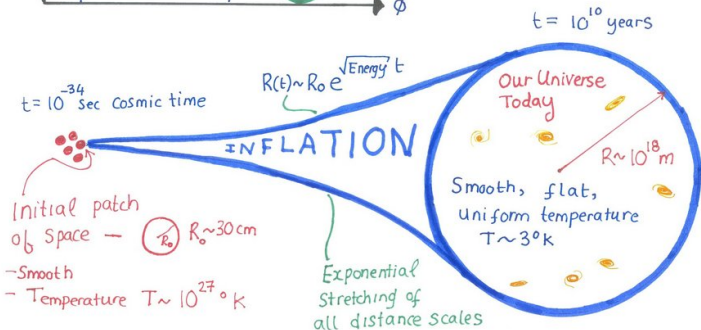 φ
t = 10^10 years
R(t) ~ R₀ e^√Energy t
t = 10^-34 sec cosmic time
INFLATION
Our Universe
Today
R ~ 10^18 m
Smooth, flat,
uniform temperature
T ~ 3°K
Initial patch
of Space — R₀ R₀ ~ 30 cm
- Smooth
- Temperature T ~ 10^27 °K
Exponential
Stretching of
all distance scales